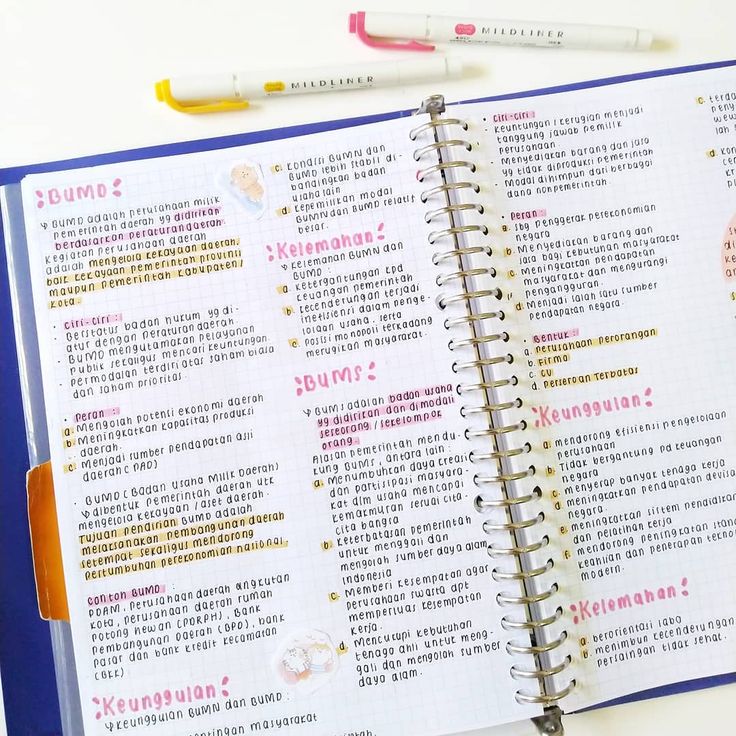 MILDLINER
MILDLINER
BUMD
↳ BUMD adalah perusahaan milik
pemerintah daerah yg didirikan
berdasarkan peraturan daerah.
Kegiatan perusahaan daerah
adalah mengelola kekayaan daerah,
baik kekayaan pemerintah provinsi
maupun pemerintah kabupaten/
kota.
• Ciri-ciri :
- Berstatus badan hukum yg di-
atur dengan peraturan daerah
- BUMD mengutamakan pelayanan
publik sekaligus mencari keuntungan.
- Permodalan terdiri atas saham biasa
dan saham prioritas.
• Peran :
a. Mengolah potensi ekonomi daerah
b. Meningkatkan kapasitas produksi
daerah.
c. Menjadi sumber pendapatan asli
daerah (PAD)
• BUMD (Badan Usaha Milik Daerah)
↳ dibentuk pemerintah daerah utk
mengelola kekayaan / aset daerah.
Tujuan pendirian BUMD adalah
melaksanakan pembangunan daerah
setempat sekaligus mendorong
pertumbuhan perekonomian nasional.
Contoh BUMD :
PDAM, perusahaan daerah angkutan
kota, perusahaan daerah rumah
potong hewan (PDRPH), Bank
Pembangunan Daerah (BPD), bank
pasar dan bank kredit kecamatan
(BKK)
Keunggulan
↳ Keunggulan BUMN dan BUMD :
tingan masyarakat
c. Kondisi BUMN dan
BUMD lebih stabil di-
bandingkan badan
usaha lain
d. Kepemilikan modal
BUMN dan BUMD relatif
besar.
Kelemahan
↳ Kelemahan BUMN dan
BUMD :
a. Ketergantungan kpd
keuangan pemerintah
b. Kecenderungan terjadi
inefisiensi dalam penge-
lolaan usaha, serta
c. Posisi monopoli terkadang
merugikan masyarakat.
BUMS
↳ BUMS adalah badan usaha
yg didirikan dan dimodali
seseorang / sekelompok
orang.
Alasan pemerintah mendu-
kung BUMS, antara lain :
a. Menumbuhkan daya kreasi
dan partisipasi masyara-
kat dlm usaha mencapai
kemakmuran sesuai cita-
cita bangsa
b. Keterbatasan pemerintah
untuk menggali dan
mengolah sumber daya alam
Indonesia
c. Memberi kesempatan agar
perusahaan swasta dpt
memperluas kesempatan
kerja.
d. Mencukupi kebutuhan
tenaga ahli untuk meng-
gali dan mengolah sumber
daya alam.
Ciri-ciri :
- Keuntungan / kerugian menjadi
tanggung jawab pemilik
perusahaan
- Menyediakan barang dan jasa
yg tidak diproduksi pemerintah
- Modal dihimpun dari berbagai
dana nonpemerintah.
Peran :
a. Sbg penggerak perekonomian
negara
b. Menyediakan barang dan
jasa bagi kebutuhan masyarakat
c. Meningkatkan pendapatan
masyarakat dan mengurangi
pengangguran.
d. Menjadi salah satu sumber
pendapatan negara.
• Bentuk :
a. Perusahaan perorangan
b. Firma
c. CV
d. Perseroan Terbatas
Keunggulan
a. mendorong efisiensi pengelolaan
perusahaan
b. Tidak bergantung pd keuangan
negara
c. menyerap banyak tenaga kerja
d. meningkatkan pendapatan devisa
negara
e. meningkatkan sistem pendidikan
dan pelatihan kerja
f. mendorong peningkatan stan
keahlian dan penerapan tekno
modern.
Kelemahan
a. berorientasi laba
b. menimbun kecenderungan
persaingan tidak sehat.
c. terda